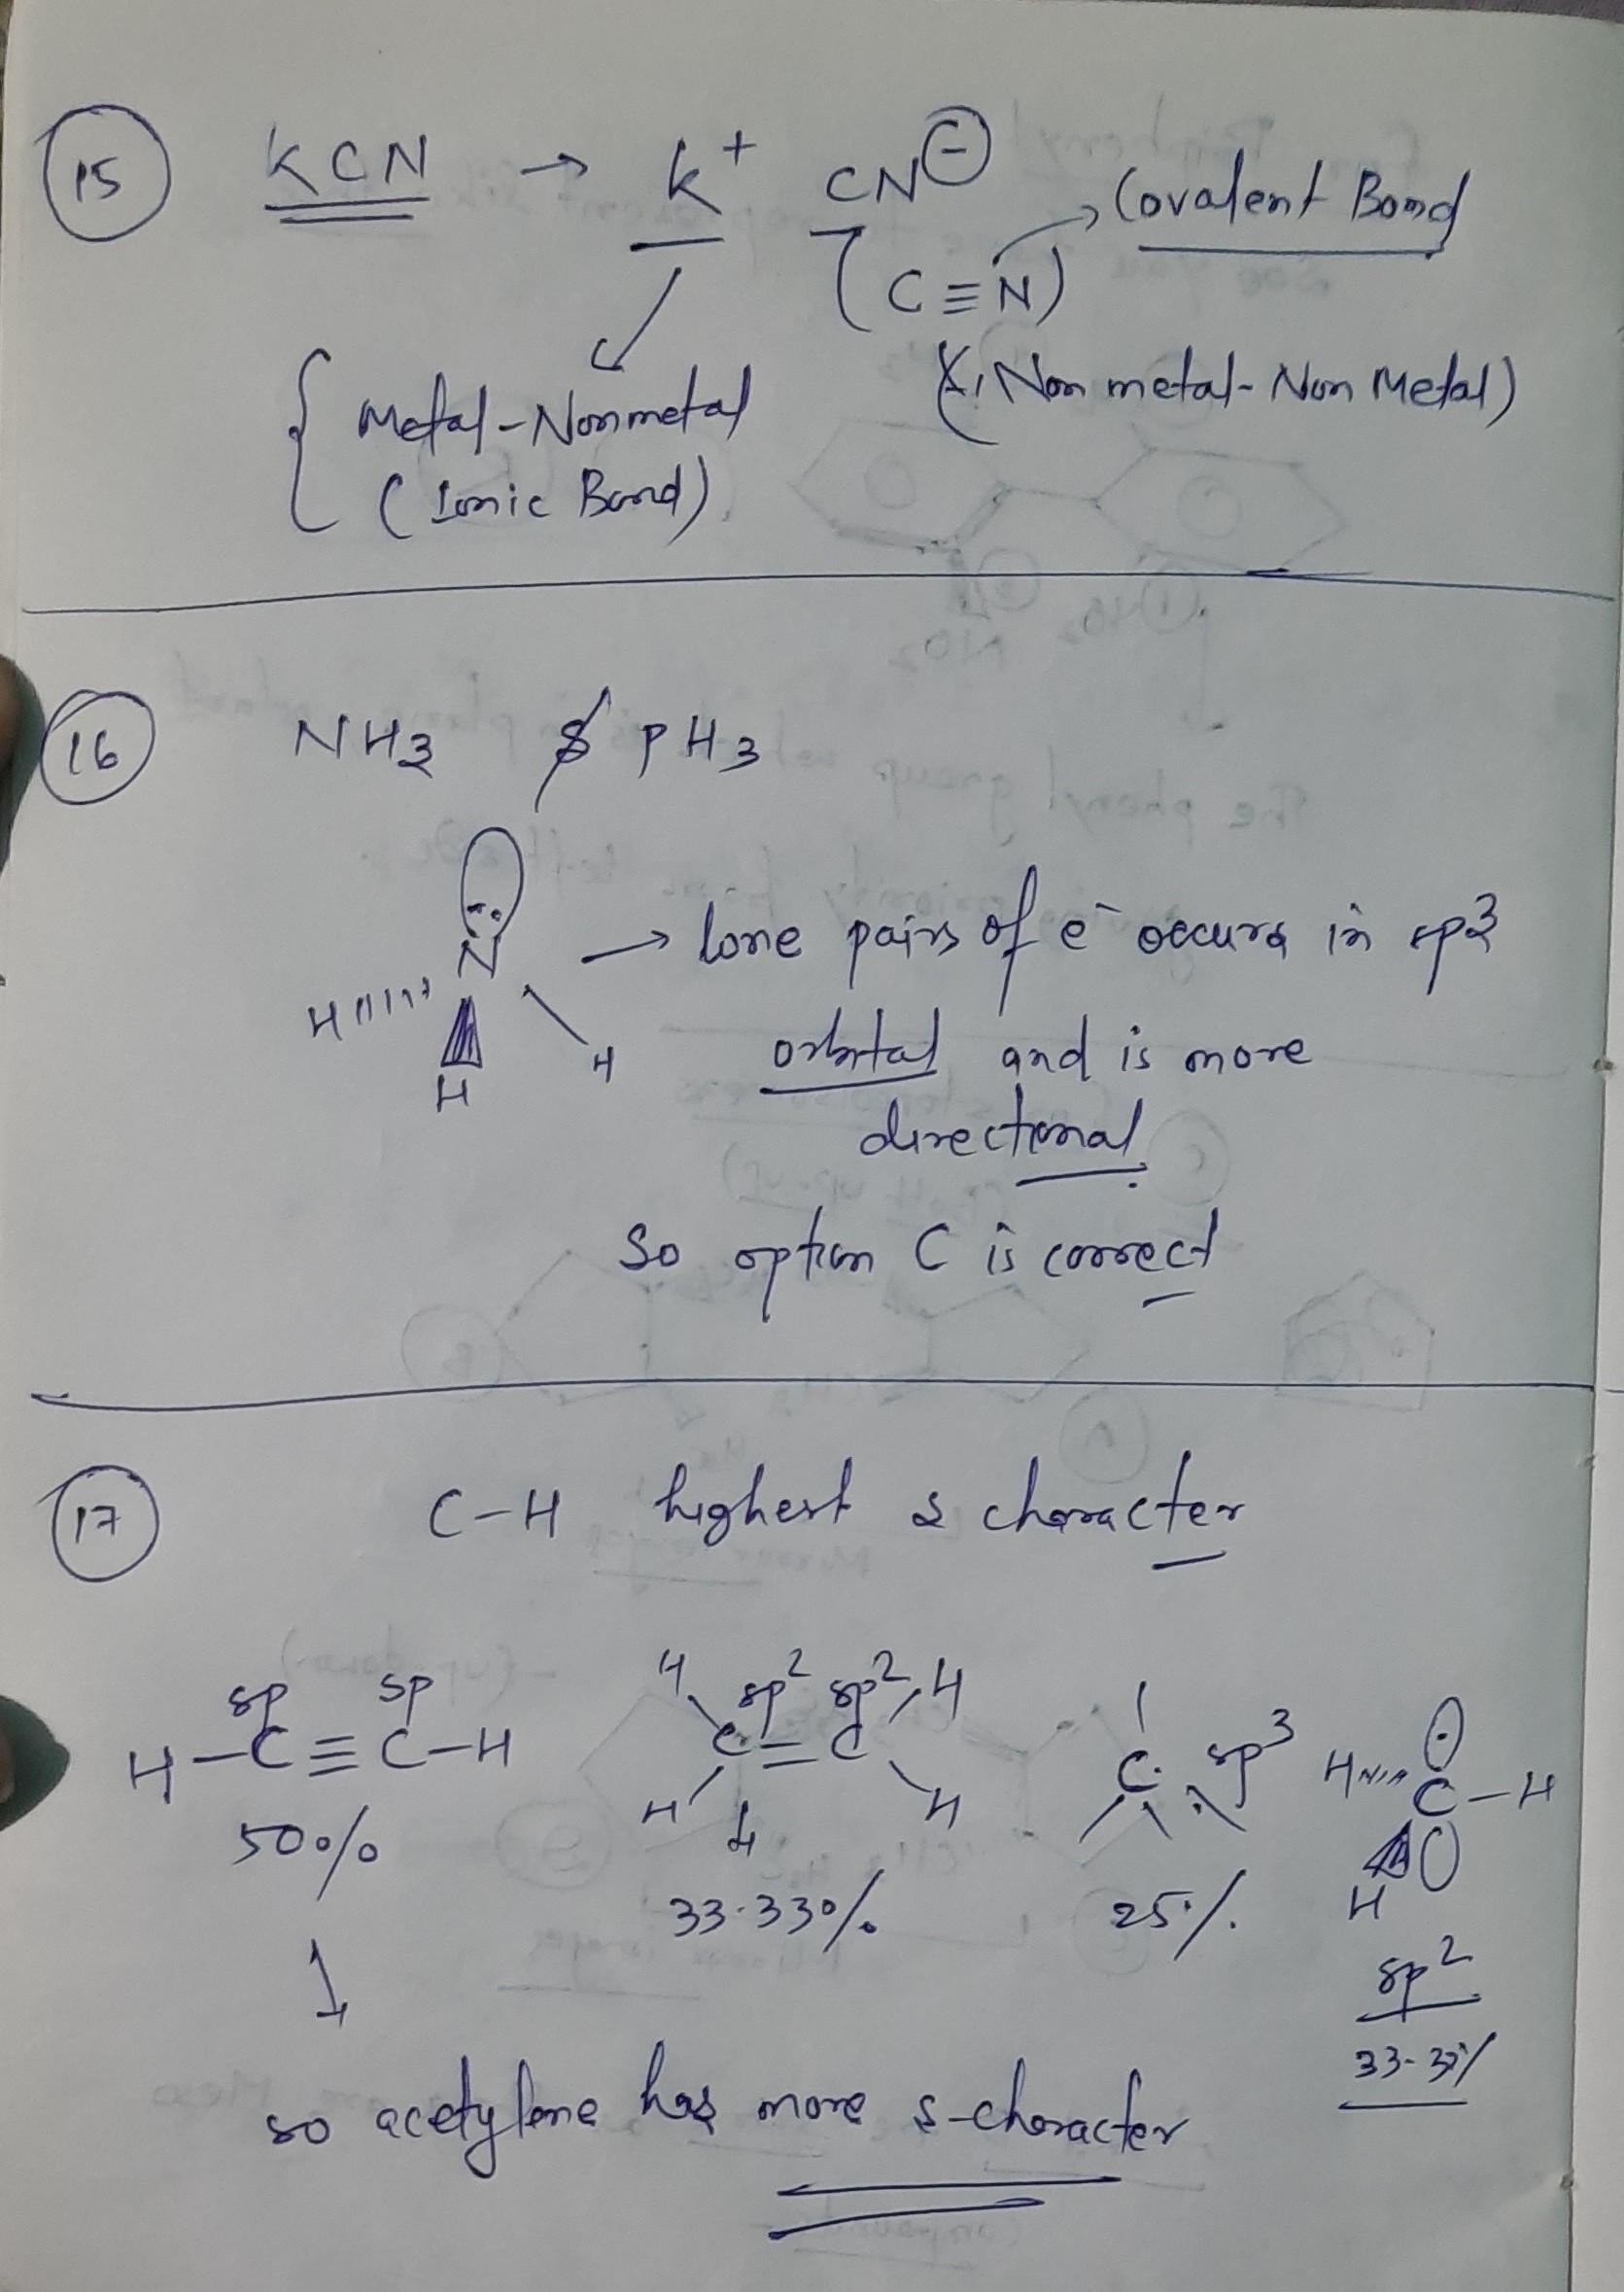 15 KCN → K⁺ CN⊖
Covalent Bond
(C≡N)
(Non metal-Non Metal)
{ Metal-Nonmetal
(Ionic Bond)
16 NH3 & PH3
N
H H
H
→ lone pairs of e⁻ occurs in sp3
orbital and is more
directional.
So option C is correct
17 C-H highest s character
sp sp
H-C≡C-H
50%
H sp² sp² H
C=C
H H
33.33%
C sp³
25%
H C-H
H
sp²
33.33%
so acetylene has more s-character